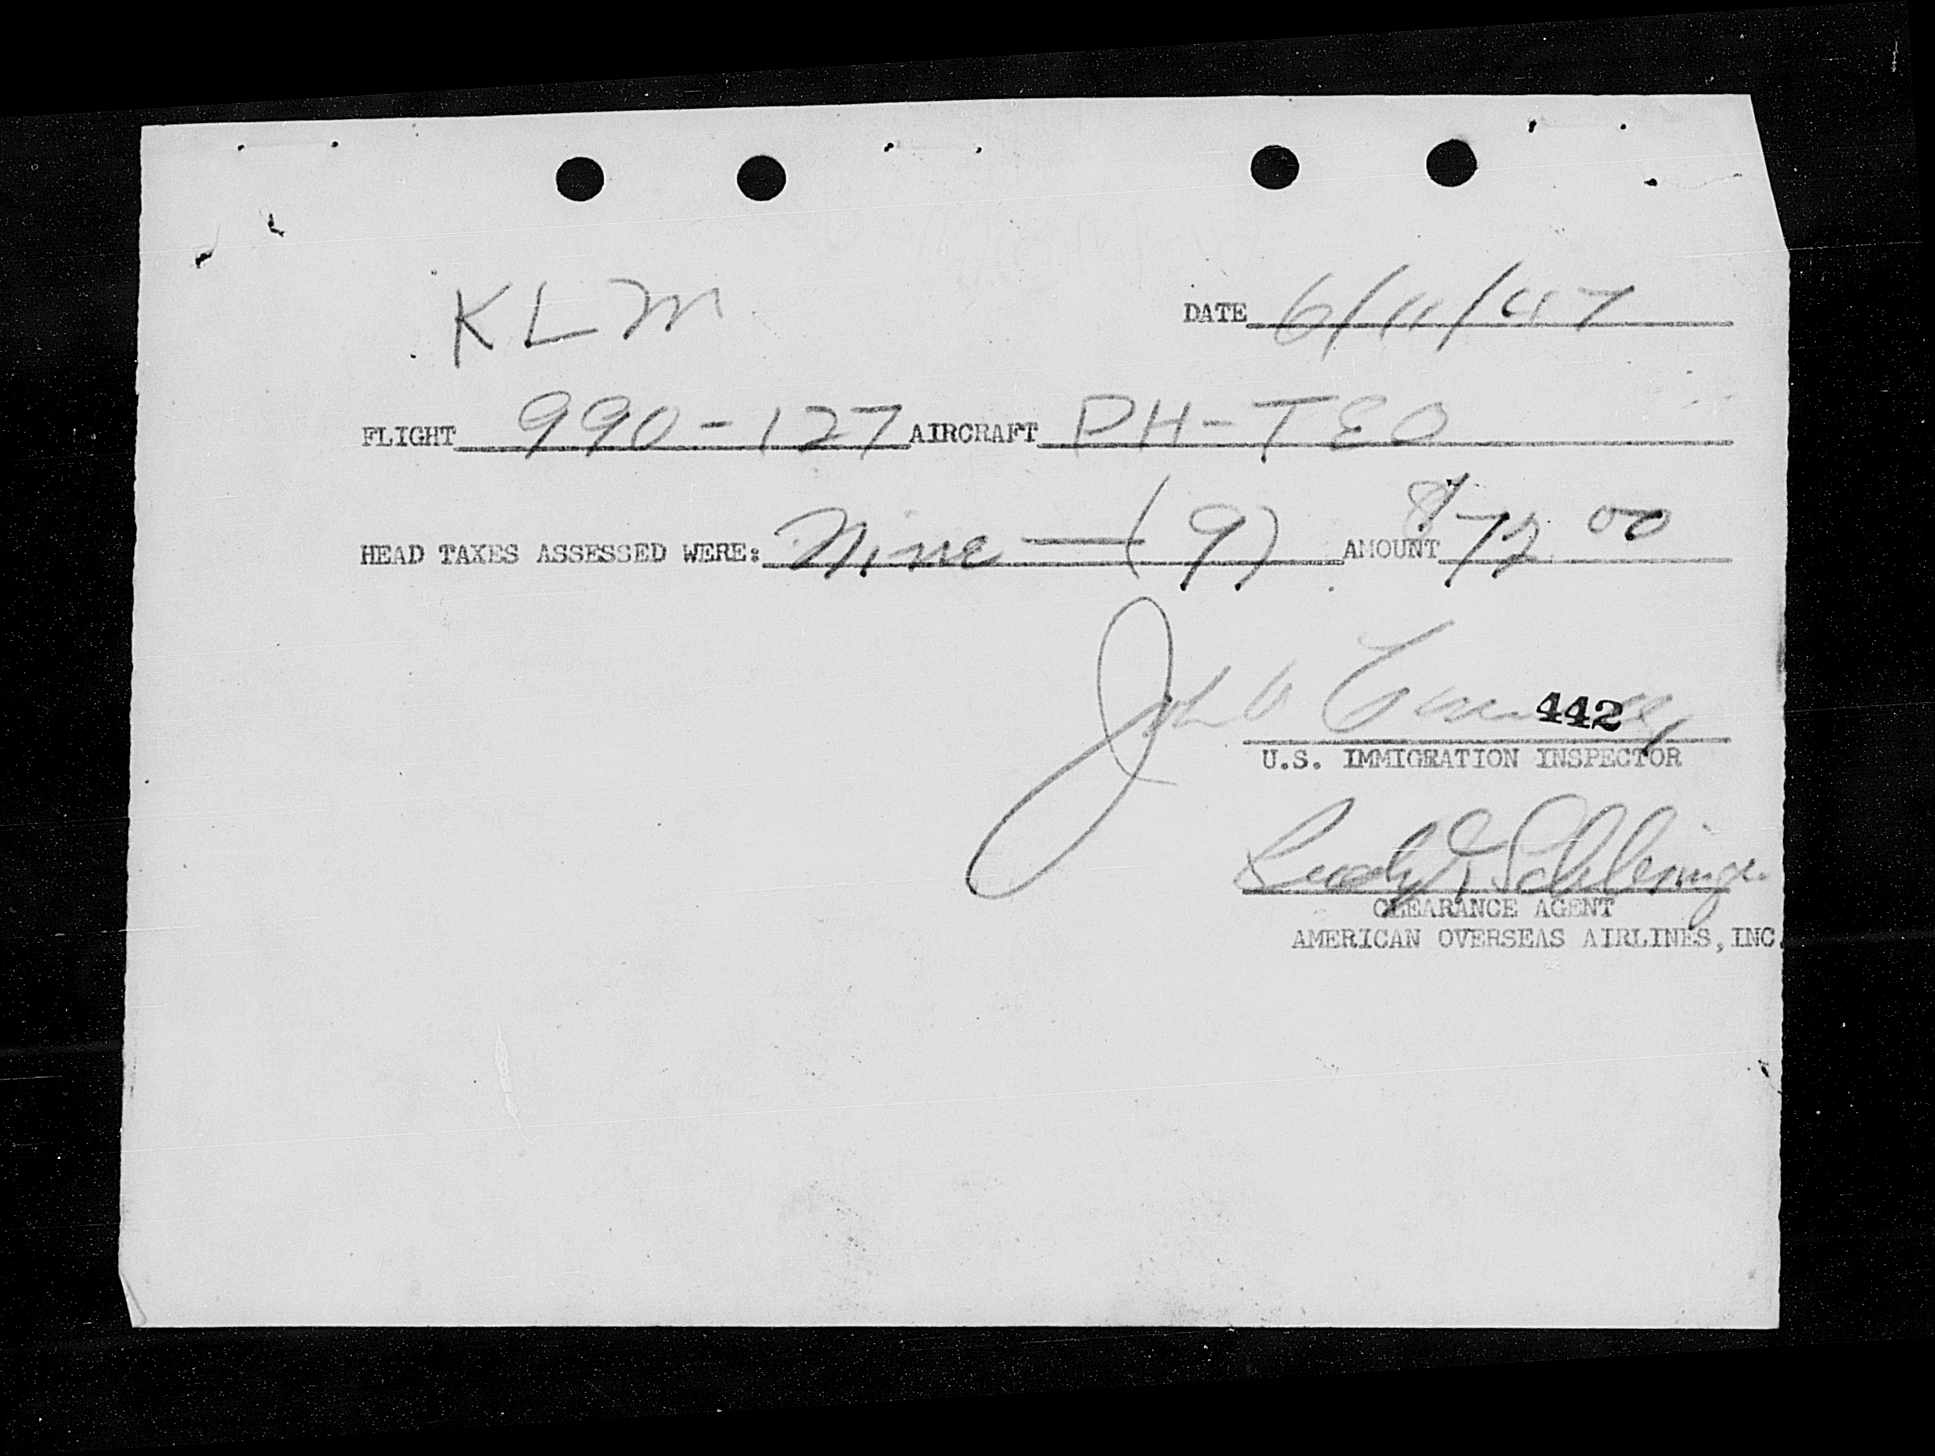 KLM
DATE 6/11/47
FLIGHT 990-127 AIRCRAFT PH-TEO
HEAD TAXES ASSESSED WERE: Nine — (9) AMOUNT $72 00
John
442
U.S. IMMIGRATION INSPECTOR
Rudy G Schlesinger
CLEARANCE AGENT
AMERICAN OVERSEAS AIRLINES, INC.